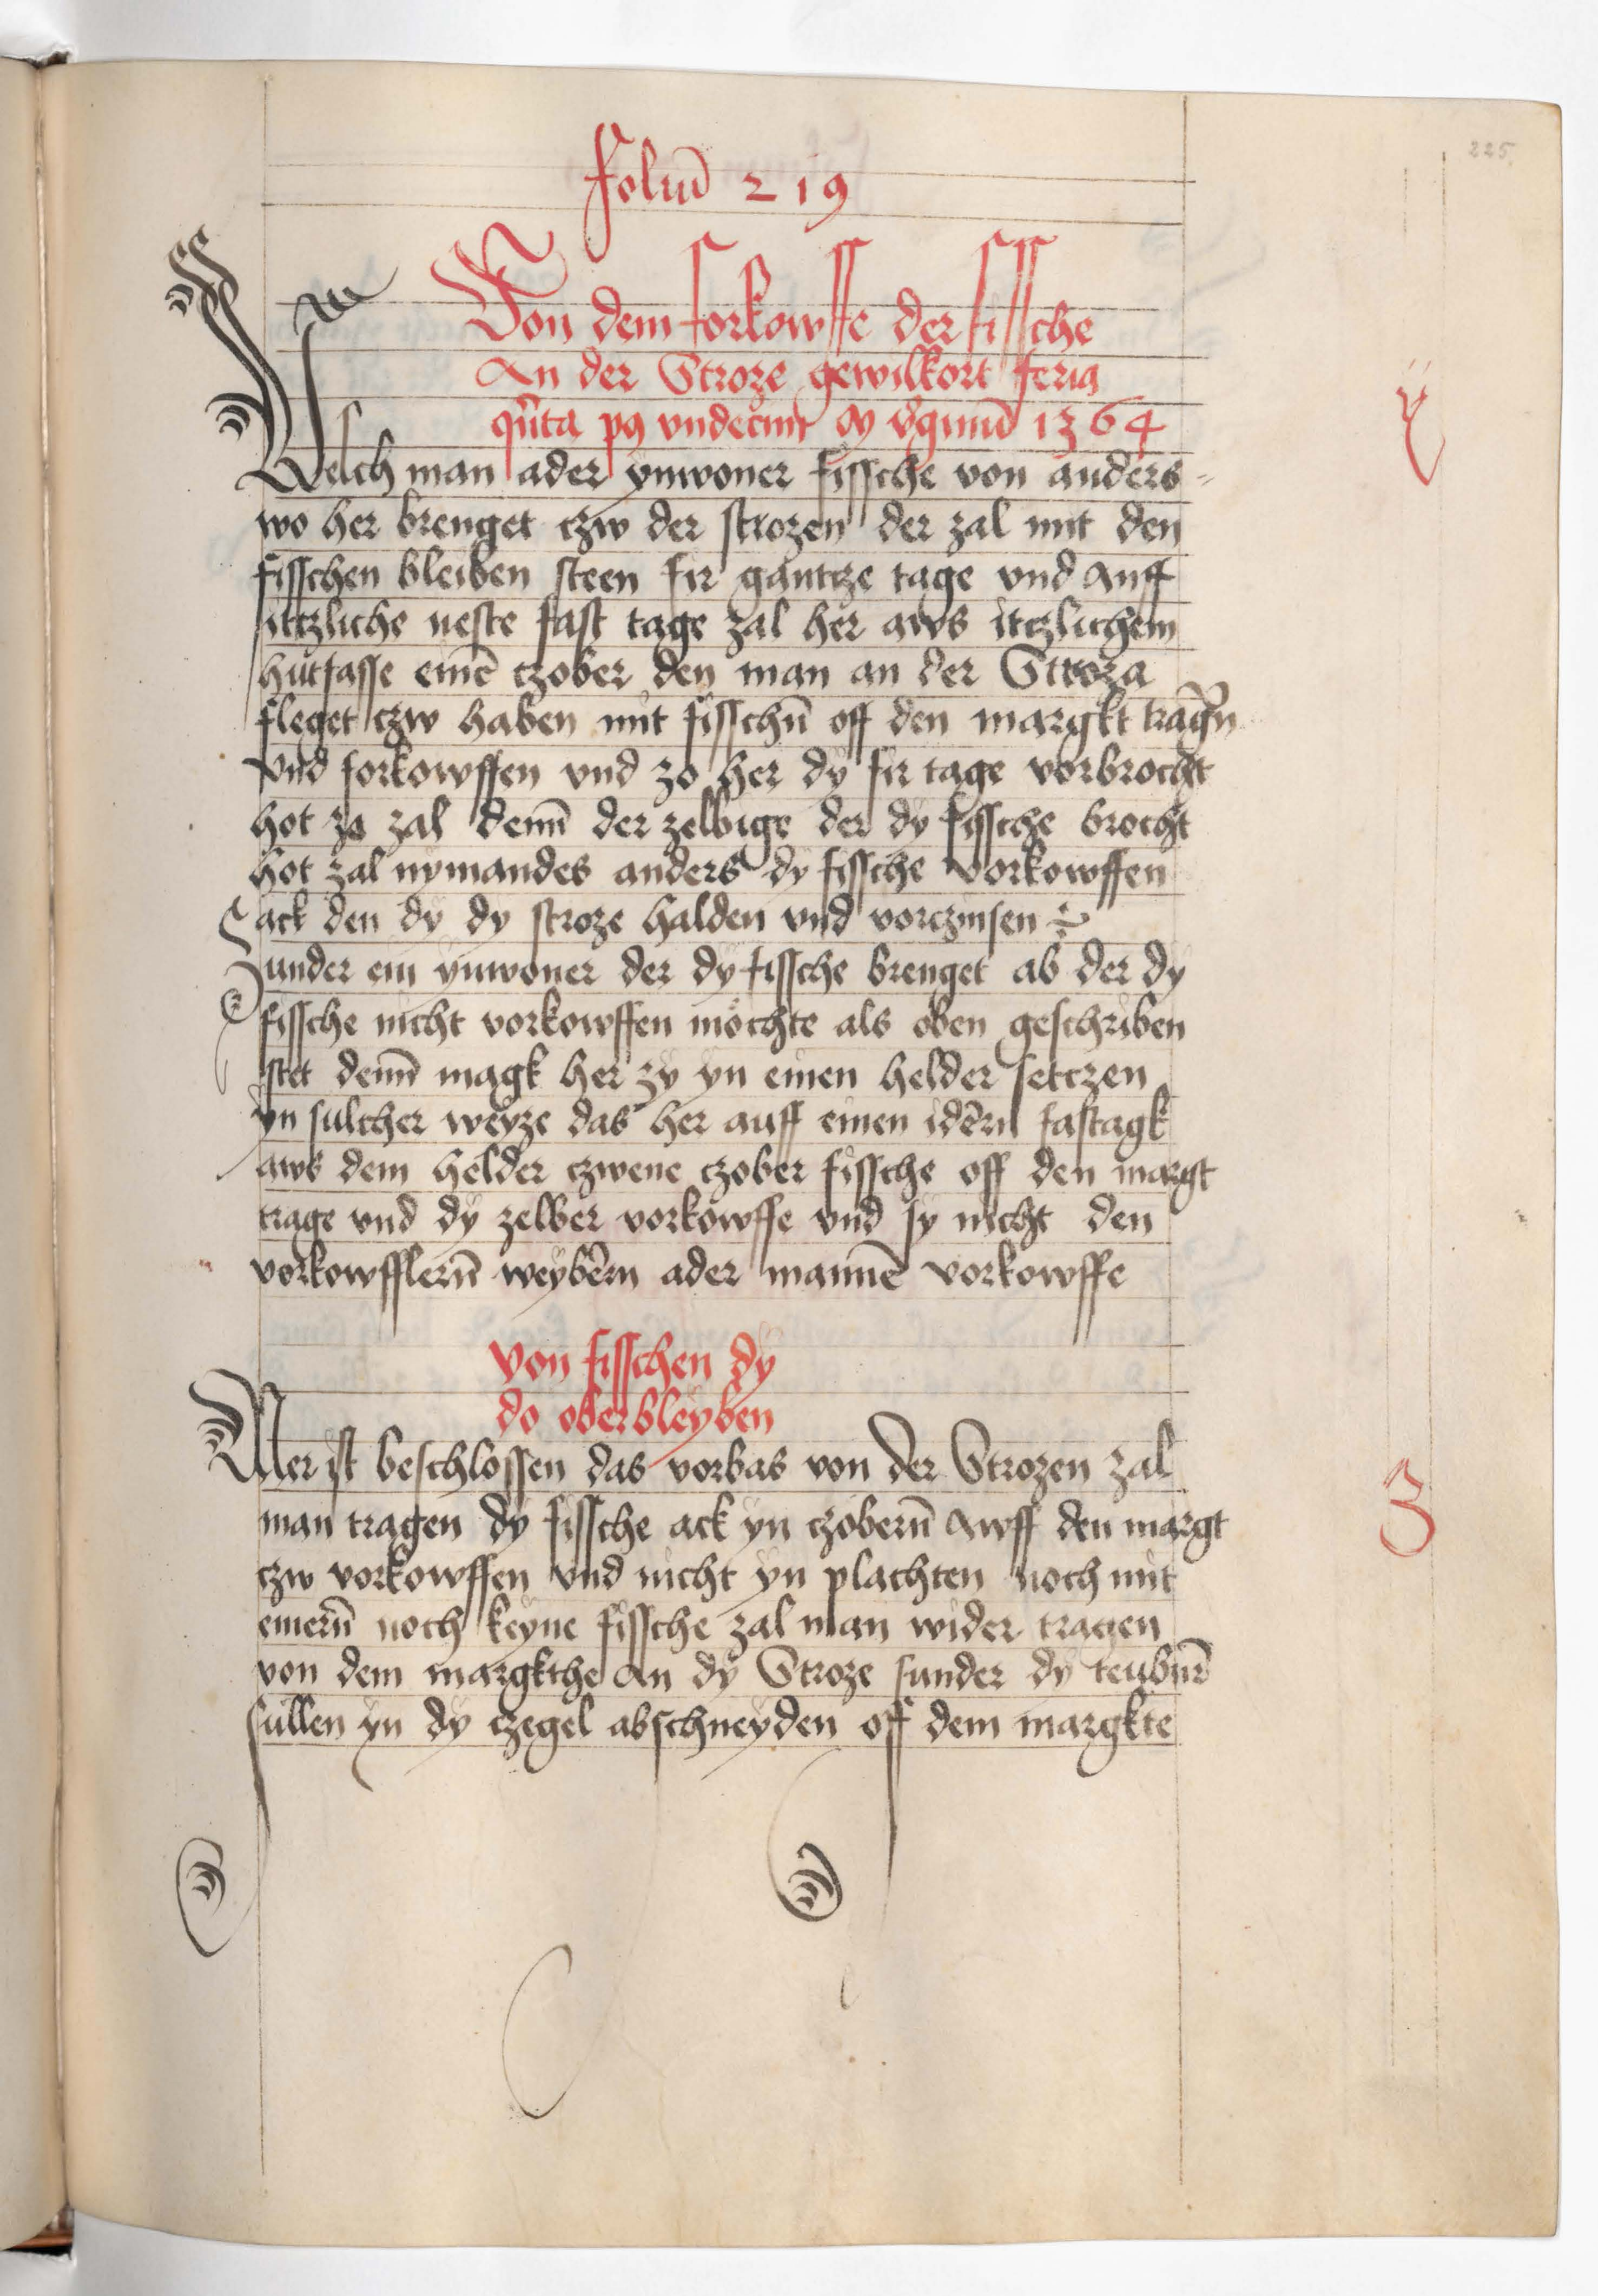 225.
foliū 219
Von dem forkowffe der fissche
An der Stroze gewilkort feria
qn̄ta pꝯ vndecim m v̄gnmū 1364
Welch man ader ynwoner fissche von anders-
wo her brenget czw der strozen der zal mit den
fisschen bleiben steen fir gantcze tage vnd Auff
itczliche neste fast tage zal her aws itczlichem
hutfasse einē czober den man an der Stroza
fleget czw haben mit fisschn̄ off den margkt traḡn
vnd forkowffen vnd zo her dy fir tage vorbrocht
hot zo zal denn̄ der zelbige der dy fissche brocht
hot zal nymandes anders dy fissche vorkowffen
ack den dy dy stroze halden vnd vorczinsen
Sunder ein ynwoner der dy fissche brenget ab der dy
fissche nicht vorkowffen möchte als oben geschriben
stet denn̄ magk her zy yn einen helder setczen
yn sulcher weyze das her auff einen idērn fastagk
aws dem helder czwene czober fissche off den margt
trage vnd dy zelber vorkowffe vnd sy nicht den
vorkowfflern̄ weybērn ader mannē vorkowffe
von fisschen dy
do oberbleyben
Mer ist beschlossen das vorbas von der Strozen zal
man tragen dy fissche ack yn czobern̄ Awff den margt
czw vorkowffen vnd nicht yn plachten noch mit
emern̄ noch keyne fissche zal man wider tragen
von dem margkthe An dy Stroze sunder dy
sullen yn dy czegel abschneyden off dem margkte
ÿ
3